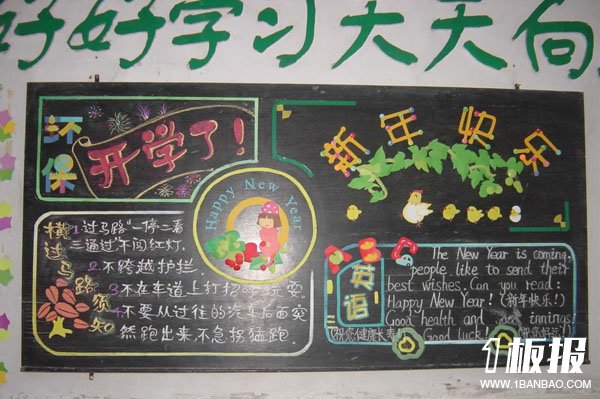 好好学习天天向
环保
开学了!
新年快乐
Happy New Year
横过马路须知
1过马路“一停二看
三通过”不闯红灯.
2.不跨越护拦.
3.不在车道上打招
4.不要从过往的汽车后面突
然跑出来,不急拐猛跑.
英语
The New Year is coming.
people like to send their
best wishes. Can you read:
Happy New Year! (新年快乐!)
Good health and good innings!
Good luck!
板报
WWW.1BANBAO.COM